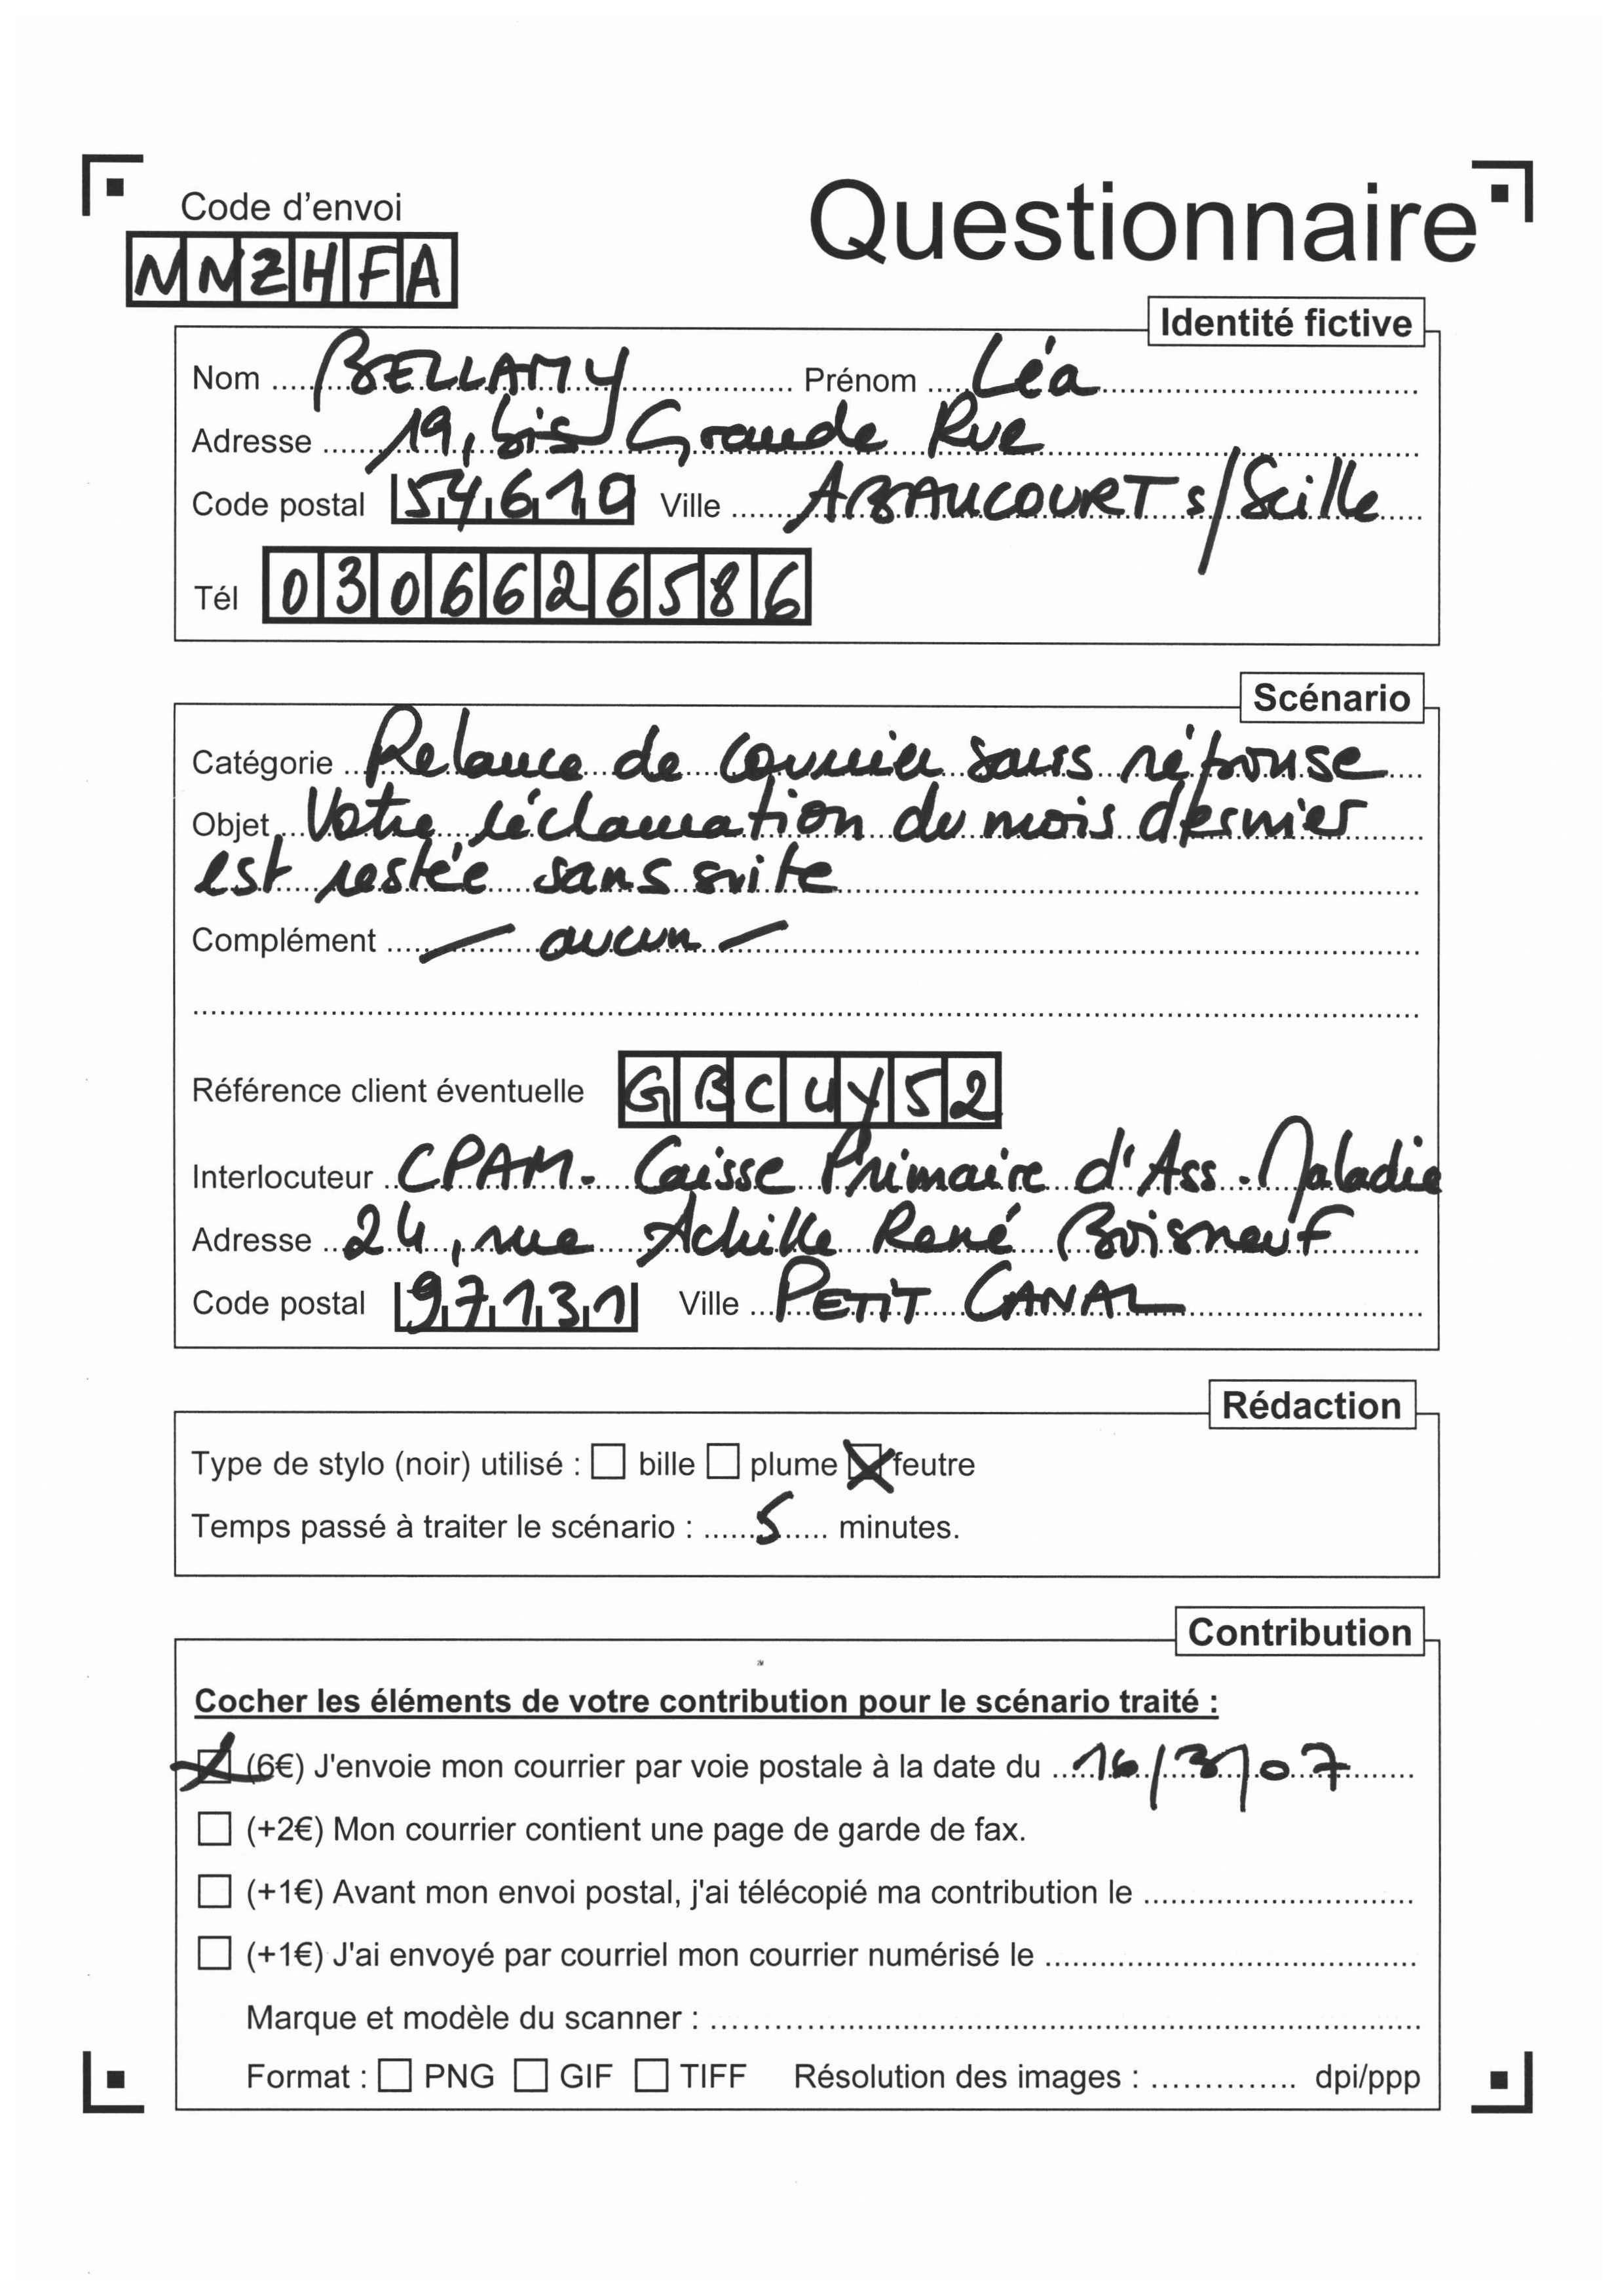 Code d'envoi
Questionnaire
NNZHFA
Identité fictive
Nom BELLAMY Prénom Léa
Adresse 19, bis Grande Rue
Code postal 54619 Ville ABAUCOURT s/Seille
Tél 0306626586
Scénario
Catégorie Relance de courrier sans réponse
Objet Votre réclamation du mois dernier
est restée sans suite
Complément — aucun —
Référence client éventuelle GBCUY52
Interlocuteur CPAM - Caisse Primaire d'Ass. Maladie
Adresse 24, rue Achille René Boisneuf
Code postal 97131 Ville PETIT CANAL
Rédaction
Type de stylo (noir) utilisé : ☐ bille ☐ plume ☒ feutre
Temps passé à traiter le scénario : 5 minutes.
Contribution
Cocher les éléments de votre contribution pour le scénario traité :
☒ (6€) J'envoie mon courrier par voie postale à la date du 16/3/07
☐ (+2€) Mon courrier contient une page de garde de fax.
☐ (+1€) Avant mon envoi postal, j'ai télécopié ma contribution le
☐ (+1€) J'ai envoyé par courriel mon courrier numérisé le
Marque et modèle du scanner :
Format : ☐ PNG ☐ GIF ☐ TIFF Résolution des images : dpi/ppp